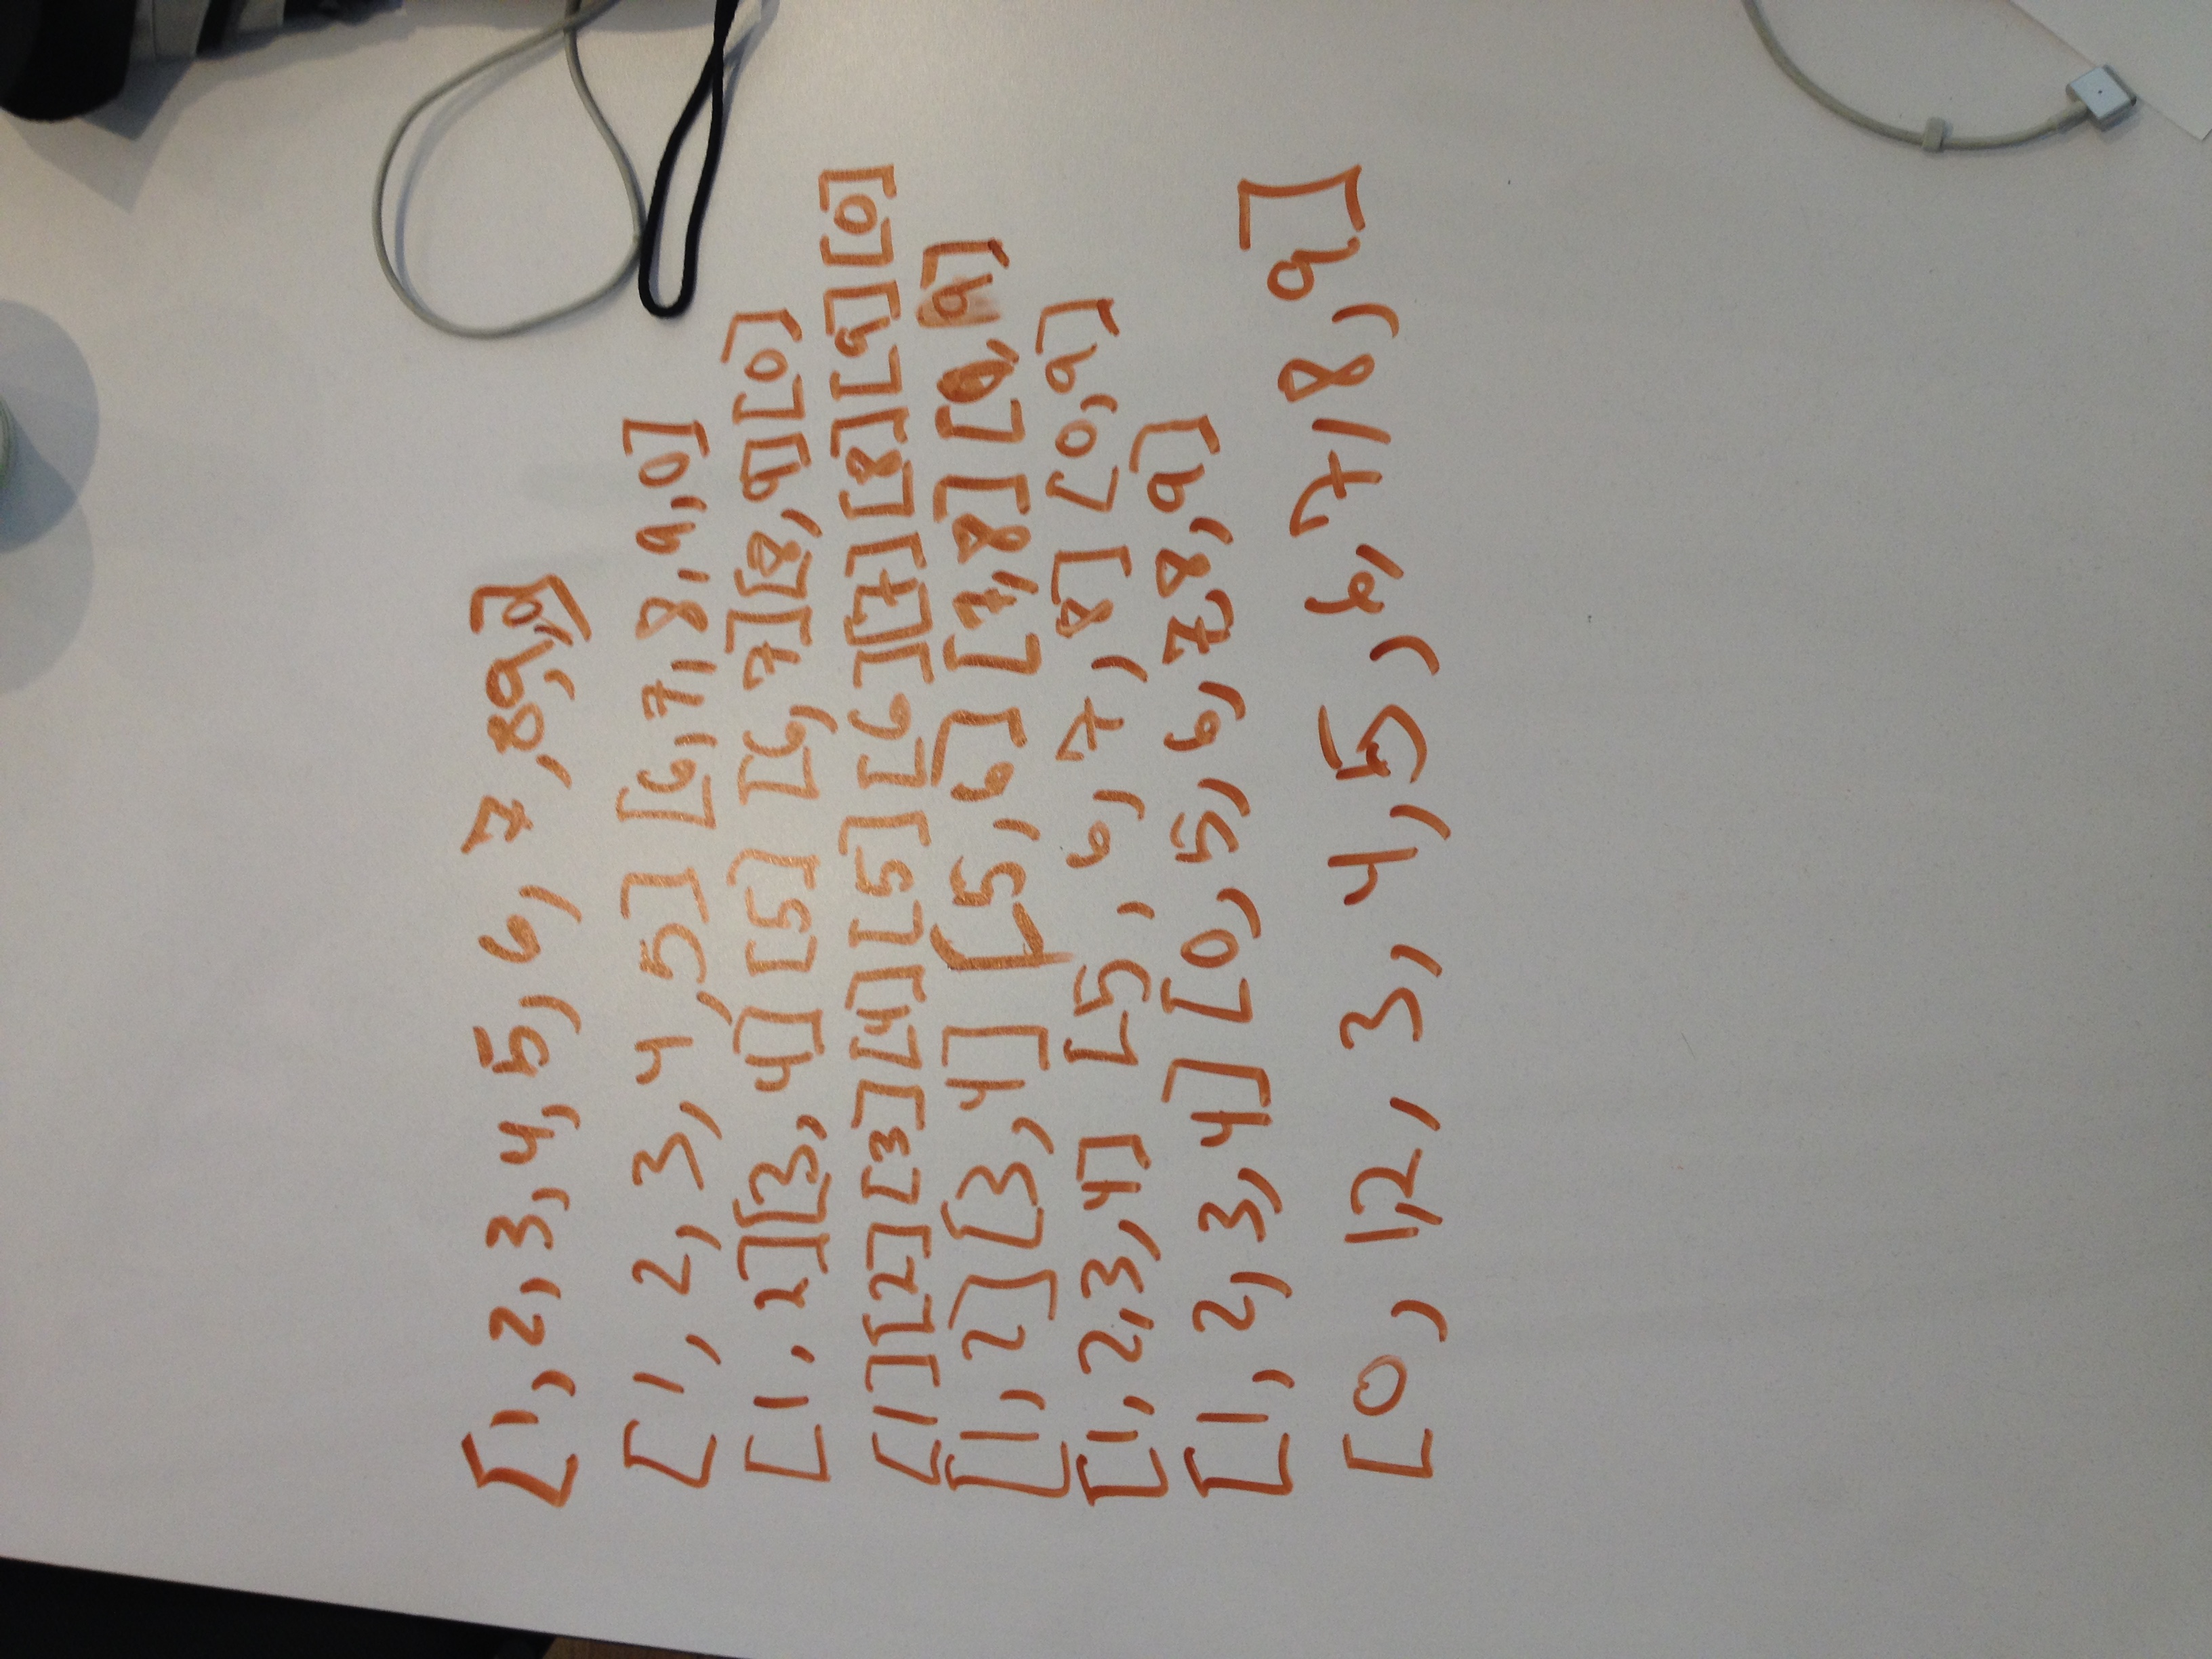 [1, 2, 3, 4, 5, 6, 7, 8 9, 9, 0]
[1, 2, 3, 4, 5] [6, 7, 8, 9, 0]
[1, 2] [3, 4] [5] [6, 7] [8, 9] [0]
[1] [2] [3] [4] [5] [6] [7] [8] [9] [0]
[1, 2] [3, 4] [5, 6] [7, 8] [0, 9]
[1, 2, 3, 4] [5, 6, 7, 8] [0, 9]
[1, 2, 3, 4] [0, 5, 6, 7, 8, 9]
[0, 1, 2, 3, 4, 5, 6, 7, 8, 9]